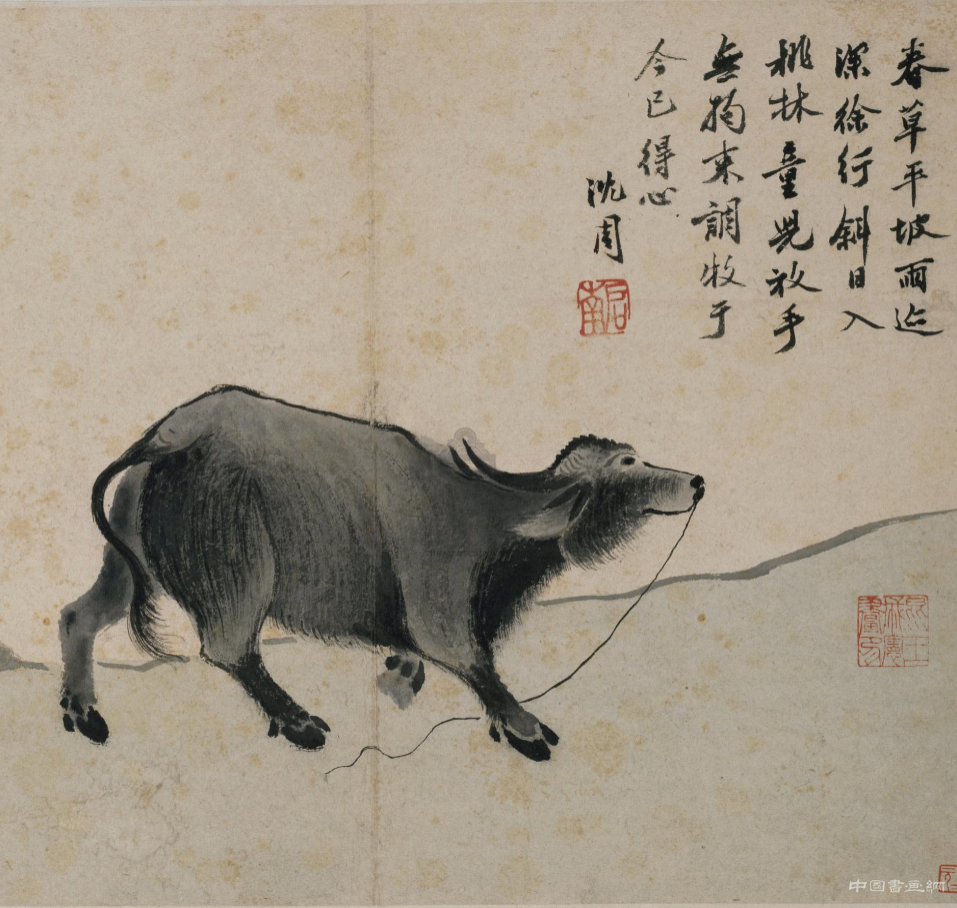 春草平坡雨迹
深徐行斜日入
桃林童兒放手
無拘束調牧于
今已得心
沈周
启南
中国書画網